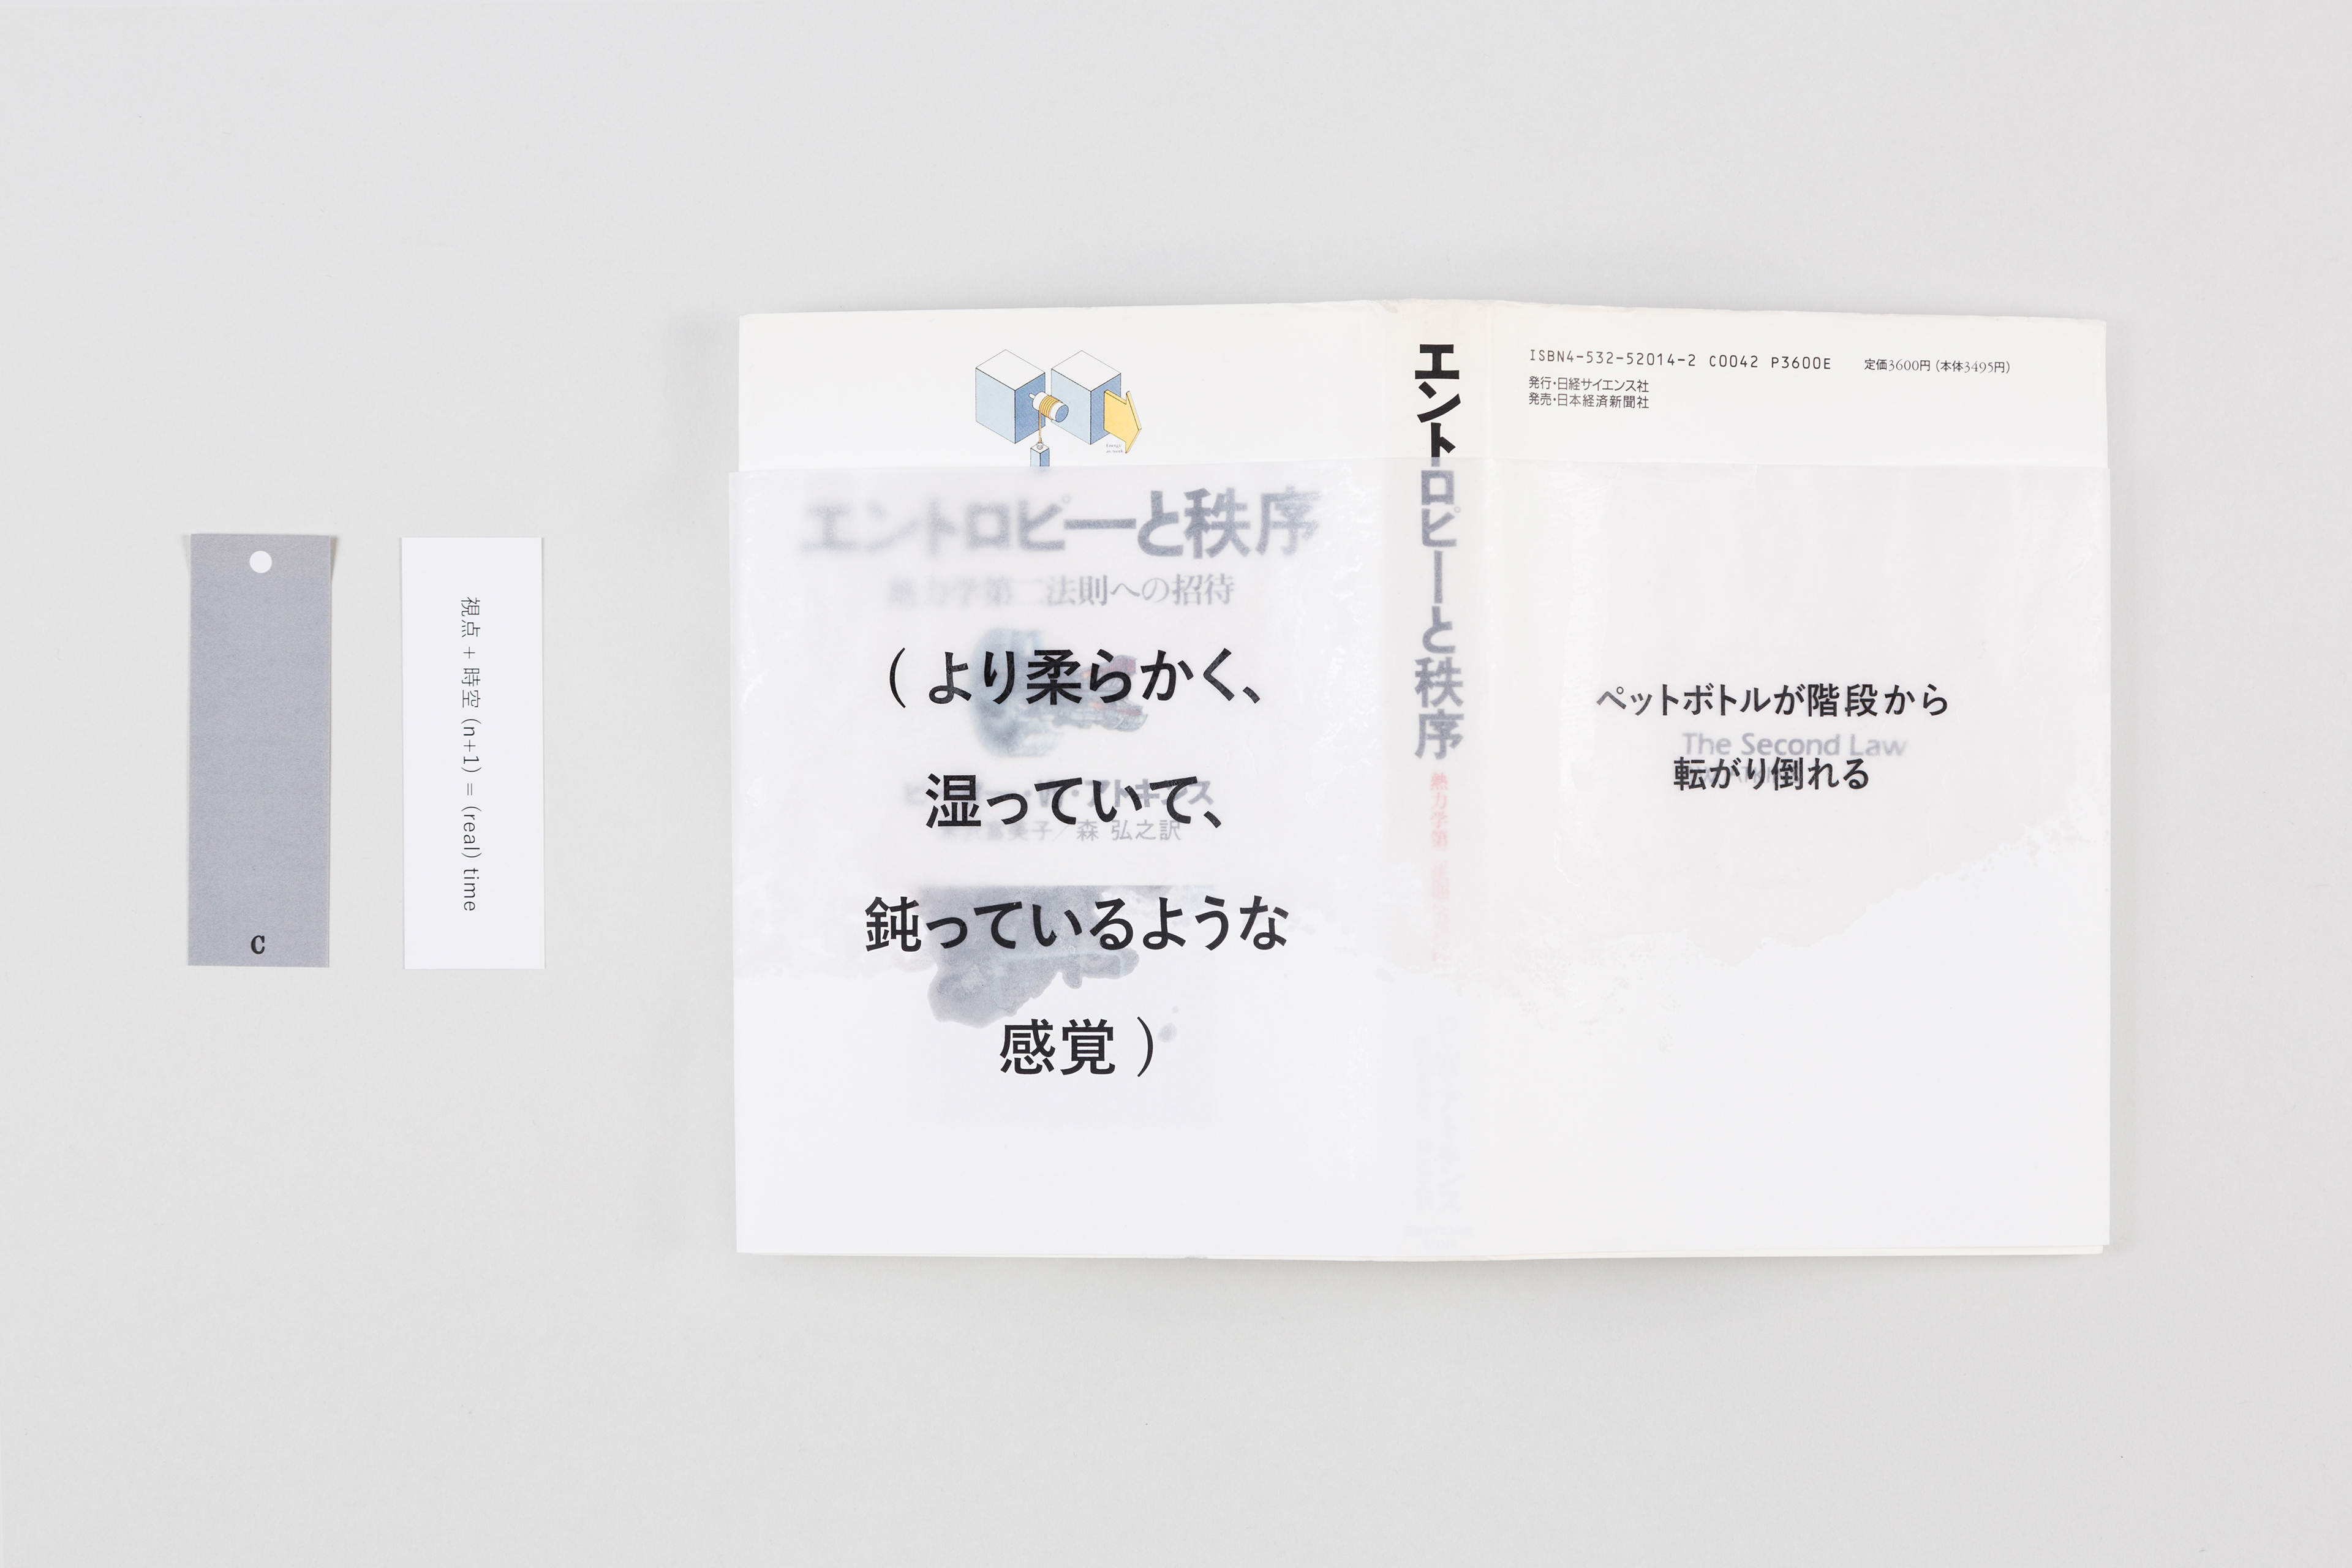 C
視点 + 時空 (n+1) = (real) time
エントロピーと秩序
熱力学第二法則への招待
(より柔らかく、
湿っていて、
・アトキンス
森 弘之訳
鈍っているような
感覚)
エントロピーと秩序
熱力学第
ISBN4-532-52014-2 C0042 P3600E 定価3600円(本体3495円)
発行・日経サイエンス社
発売・日本経済新聞社
ペットボトルが階段から
The Second Law
転がり倒れる